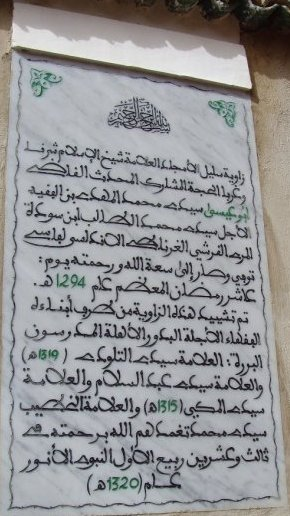 بسم الله الرحمن الرحيم
زاوية سليل الأمجاد العلامة شيخ الإسلام شرفا
وكرما الحجة المشارك المحدث القاضي
أبو عيسى سيدي محمد المهدي بن الفقيه
الأجل سيدي محمد الطالب ابن سودة
المري القرشي الغرناطي الأندلسي الفاسي
توفي وصار إلى سعة الله ورحمته يوم:
عاشر رمضان المعظم عام 1294 هـ.
تم تشييد هذه الزاوية من طرف أبناءه
الفقهاء الأجلة البدور الأهلة المدرسون
البررة: العلامة سيدي التاودي (1319 هـ)
والعلامة سيدي عبد السلام والعلامة
سيدي المكي (1315 هـ) والعلامة الخطيب
سيدي محمد تغمدهم الله برحمته في
ثالث وعشرين ربيع الأول النبوي الأنور
عام (1320 هـ)